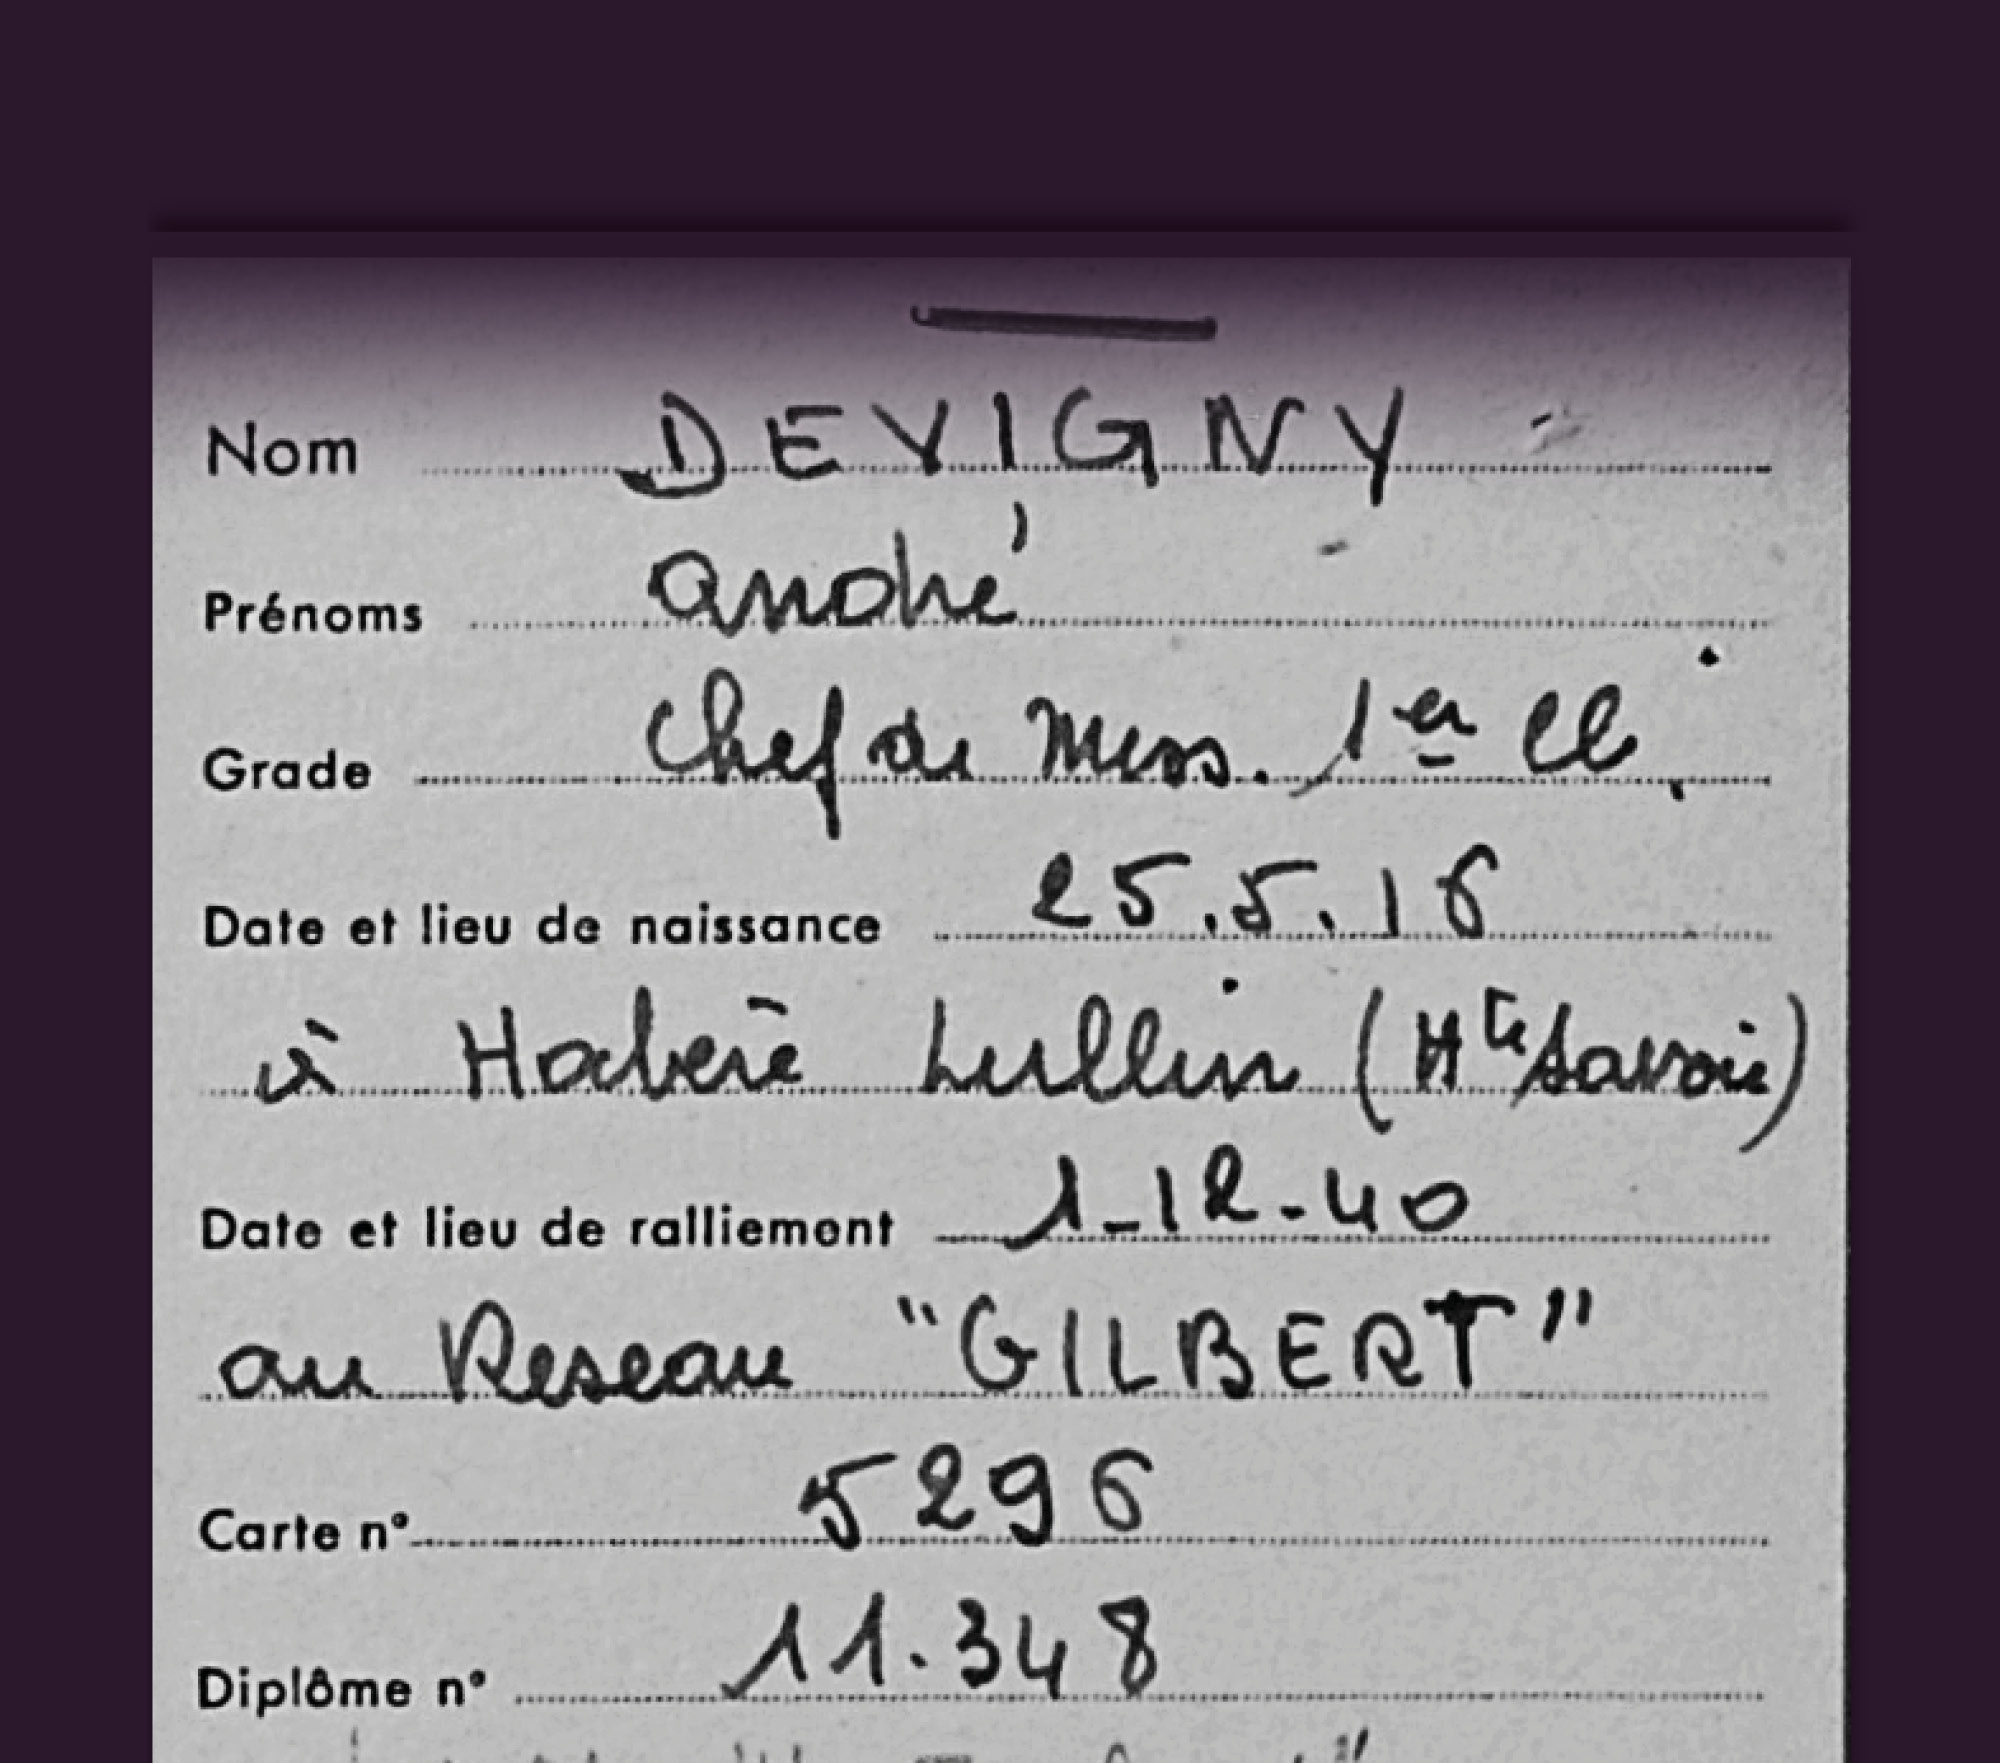 Nom DEVIGNY
Prénoms André
Grade Chef de Miss. 1er Cl.
Date et lieu de naissance 25.5.16
à Habère Lullin (Hte Savoie)
Date et lieu de ralliement 1-12-40
au Reseau "GILBERT"
Carte n° 5296
Diplôme n° 11.348